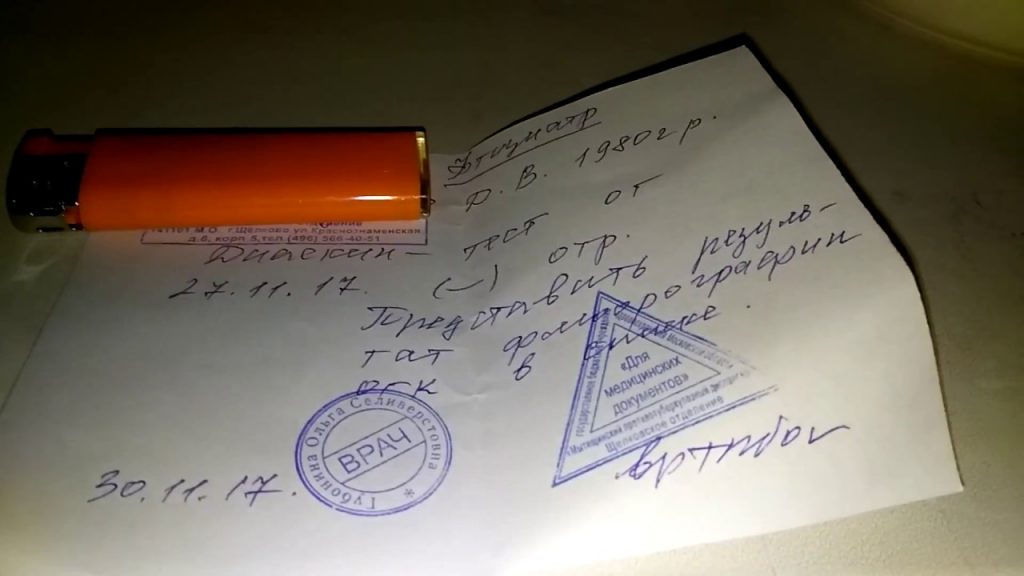 Фтизиатр
141101 М.О. г.Щелково ул.Краснознаменская
д.6, корп.5,тел.(496) 566-40-51
Ф. В. 1980 г р.
Диаскин- тест от
27.11.17. (-) отр.
Представить резуль-
тат флюорографии
ОГК в
«Для
медицинских
документов»
Мытищинский противотуберкулезный
Щелковское отделение
Губонина Ольга Селиверстовна
ВРАЧ
30.11.17.